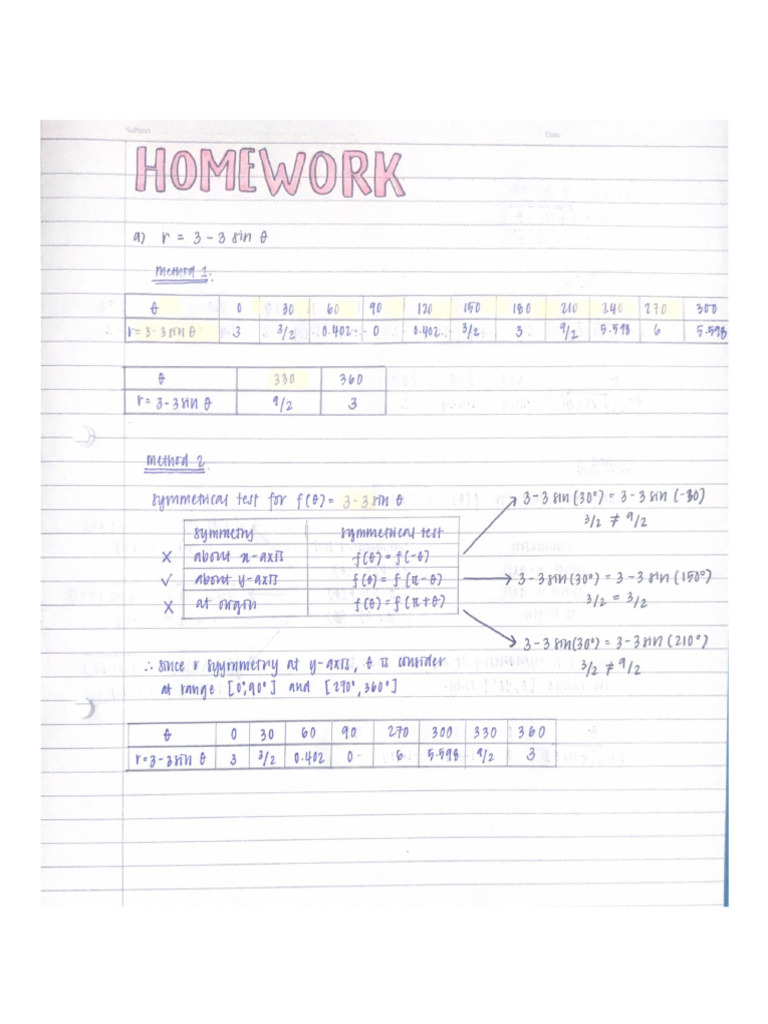 Subject
Date
HOMEWORK
a) r = 3 - 3 sin θ
Method 1:
θ 0 30 60 90 120 150 180 210 240 270 300
r = 3-3 sin θ 3 3/2 0.402 0 0.402 3/2 3 9/2 5.598 6 5.598
θ 330 360
r = 3-3 sin θ 9/2 3
Method 2
symmetrical test for f(θ) = 3-3 sin θ
symmetry symmetrical test
X about x-axis f(θ) = f(-θ)
✓ about y-axis f(θ) = f(π-θ)
X at origin f(θ) = f(π+θ)
3-3 sin (30°) = 3-3 sin (-30)
3/2 ≠ 9/2
3-3 sin (30°) = 3-3 sin (150°)
3/2 = 3/2
3-3 sin(30°) = 3-3 sin (210°)
3/2 ≠ 9/2
∴ since r syymmetry at y-axis, θ is consider
at range [0°,90°] and [270°,360°]
θ 0 30 60 90 270 300 330 360
r=3-3 sin θ 3 3/2 0.402 0 6 5.598 9/2 3